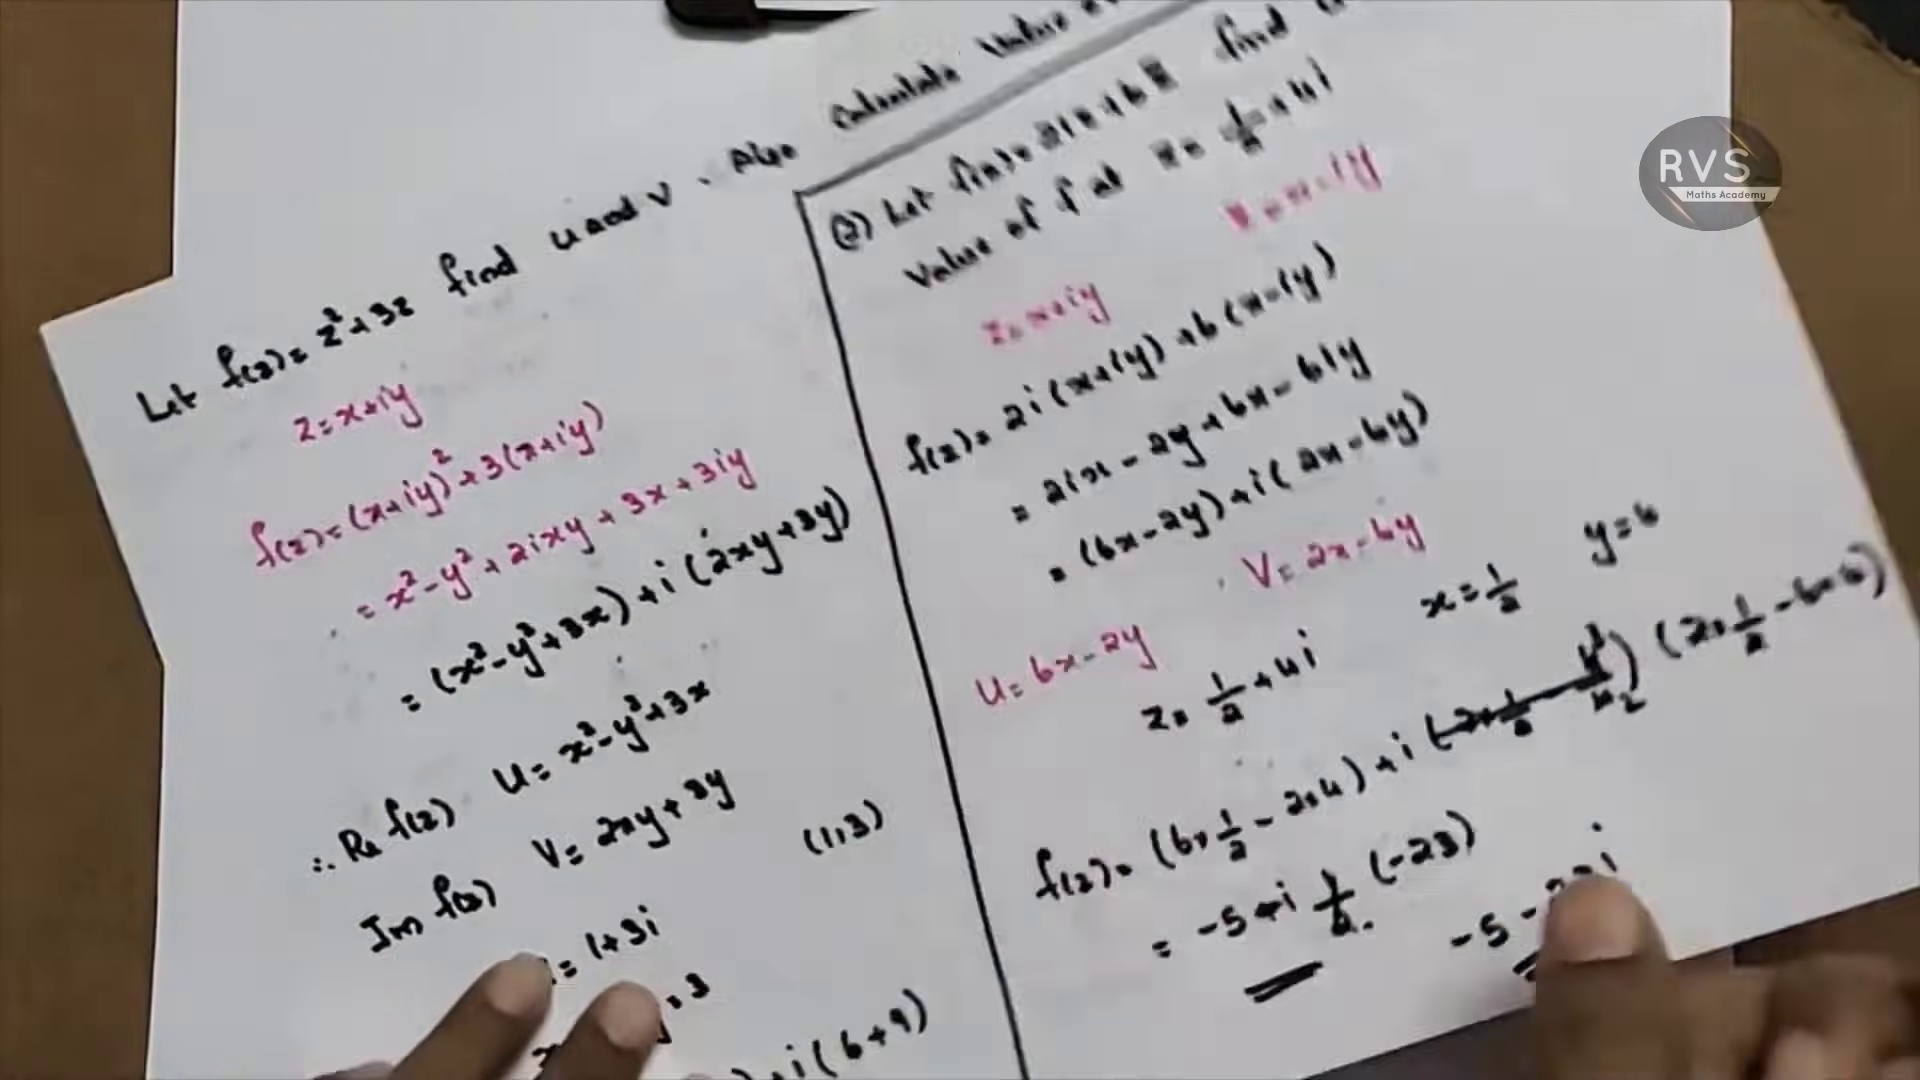 Let f(z) = z² + 3z find u and v. Also Calculate Value
z = x+iy
f(z) = (x+iy)² + 3(x+iy)
= x² - y² + 2ixy + 3x + 3iy
= (x² - y² + 3x) + i(2xy + 3y)
∴ Re f(z) u = x² - y² + 3x
Im f(z) v = 2xy + 3y
(1,3)
= 1+3i
= 3
+ i(6+9)
(2) Let f(z) = 2iz + 6z̄ find
Value of f at z = 1/2 + 4i
z = x+iy
z̄ = x-iy
f(z) = 2i(x+iy) + 6(x-iy)
= 2ix - 2y + 6x - 6iy
= (6x-2y) + i(2x-6y)
u = 6x-2y v = 2x-6y
z = 1/2 + 4i x = 1/2
f(z) = (6×1/2 - 2×4) + i
= -5 + i (-23)
-5 -
RVS
Maths Academy